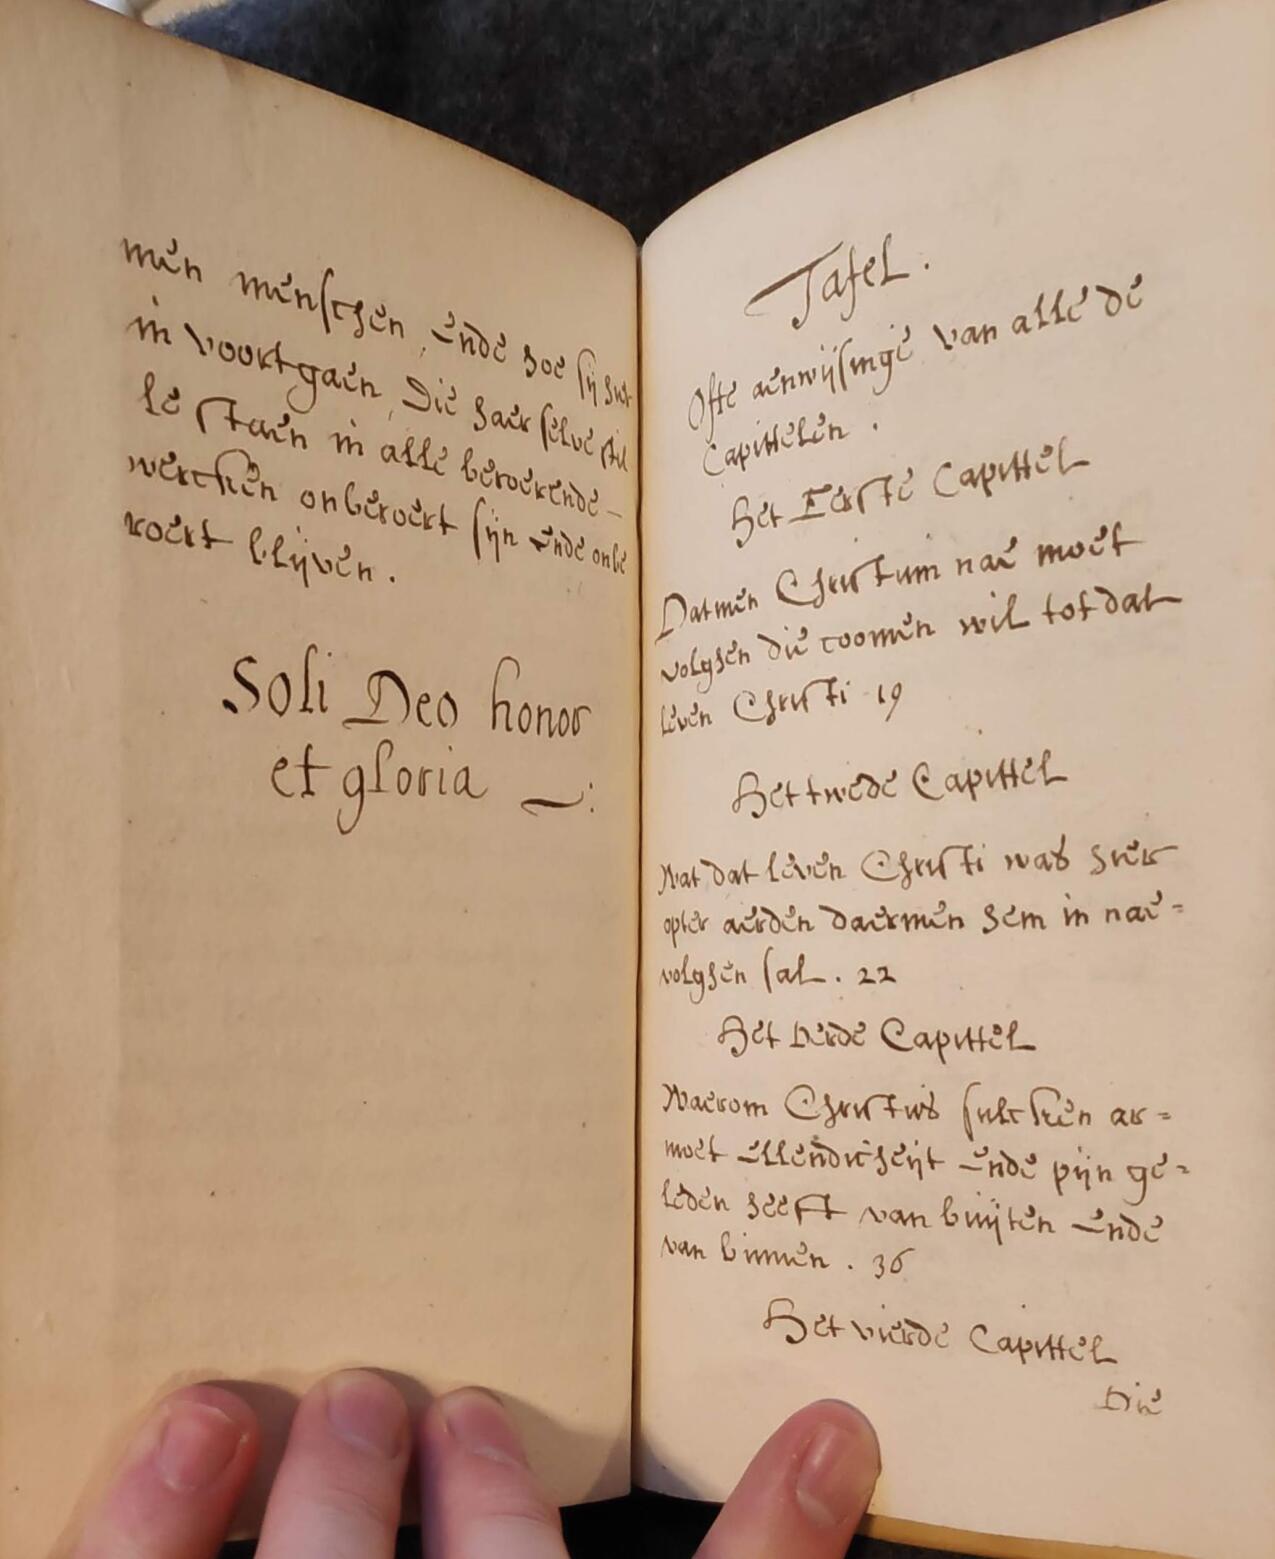 men menschen, ende hoe sij hier
in voortgaen, Die haer selve stil
le staen in alle beroerende
wercken onberoert sijn ende onbe
roert blijven.
Soli Deo honor
et gloria
Tafel.
Ofte aenwijsinge van alle de
Capittelen.
Het Eerste Capittel
Datmen Christum nae moet
volghen die coomen wil tot dat
leven Christi 19
Het twede Capittel
Wat dat leven Christi was hier
opter aerden daermen hem in nae=
volghen sal. 22
Het derde Capittel
Waerom Christus sulcken ar=
moet ellendicheijt ende pijn ge=
leden heeft van buijten ende
van binnen. 36
Het vierde Capittel
Die